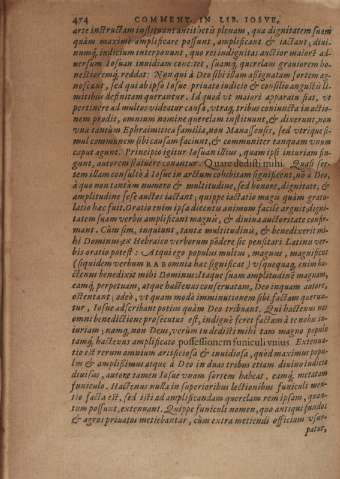 474 COMMENT. IN LIB. IOSVE,
arte instructam iustitiæ inuentionis plenam, qua dignitatem suam
quàm maximè amplificare possunt, amplificant & iactant, diui-
númq; iudicium interponunt, quo res indignitas auctior maiore ad-
uersum Iosuam inuidiam concitet, suamq; querelam grauiorem ho-
nestioremq; reddat: Non qui à Deo sibi illam assignatam sortem ag-
noscant, sed quia ab ipso Iosue priuato iudicio & consilio angustis li-
mitibus definitam querantur. Id quod vt maiori apparatu fiat, vt
pertinere ad multos videatur causa, vtraq; tribus coniuncta in actio-
nem prodit, omnium nomine querelam instituunt, & diserunt, non
vna tantùm Ephraimitica familia, non Manassensis, sed vtriq; si-
mul communem sibi causam faciunt, & communiter tanquam vnum
caput agunt. Principiò igitur Iosuam ictius, quam ipsi iniuriam fin-
gunt, autorem statuere conantur. Quare dedisti mihi. Quasi sor-
tem illam consultò à Iosue in arctum cohibitam significent, nō à Deo,
à quo non tantùm numero & multitudine, sed honore, dignitate, &
amplitudine sese auctos iactant, quippe iactatio magis quàm grata-
latio hæc fuit. Oratio enim ipsa decenti animum facilè arguit: digni-
tatem suam verbis amplificant magnis, & diuina auctoritate confir-
mant. Cùm sim, inquiunt, tanta multitudinis, & benedixerit mi-
hi Dominus: ex Hebraico verborum pōdere sic pensitari Latinis ver-
bis oratio potest: Atqui ego populus multus, magnus, magnificus
(siquidem verbum RAB omnia hæc significat) vsquequaq; enim ho-
ctenus benedixit mihi Dominus. Itaque suam amplitudinē magnam,
eamq; perpetuam, atque hactenus conseruatam, Deo inquam autore,
ostentant: adeò, vt quam modo imminutionem sibi factam queran-
tur, Iosue adscribant potiùs quàm Deo tribuant. Qui hactenus nos
omni benedictione prosecutus est, indignè feret factam à te nobis in-
iuriam; namq; non Deus, verùm tu dedisti mihi tam magno populo
tamq; hactenus amplificato possessionem funiculi vnius. Extenua-
tio est rerum omnium artificiosa & inuidiosa, quòd maximus popu-
lus & amplissimus atque à Deo in duas tribus etiam diuino iudicio
diuisus, autore tamen Iosue vnam sortem habeat, eamq; metatam
funiculo. Hactenus nulla in superioribus lectionibus funiculi men-
tio facta est, sed isti ad amplificandam querelam rem ipsam, quan-
tum possunt, extenuant. Quippe funiculi nomen, quo antiqui fundos
& agros priuatos metiebantur, cùm extra metiendi officium vsur-
patur,